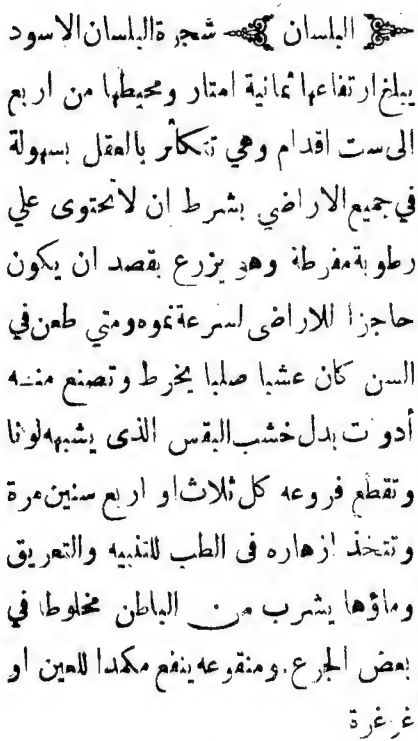 البلسان شجرة البلسان الاسود
يبلغ ارتفاعها ثمانية امتار ومحيطها من اربع
الى ست اقدام وهي تتكاثر بالعقل بسهولة
في جميع الاراضي بشرط ان لا تحتوى علي
رطوبة مفرطة وهو يزرع بقصد ان يكون
حاجزا للاراضى لسرعة نموه ومتي طعن في
السن كان عشبا صلبا يخرط وتصنع منه
أدوت بدل خشب البقس الذى يشبهه لونا
وتقطع فروعه كل ثلاث او اربع سنين مرة
وتتخذ ازهاره فى الطب للتنبيه والتعريق
وماؤها يشرب من الباطن مخلوطا في
بعض الجرع. ومنقوعه ينفع مكمدا للعين او
غرغرة